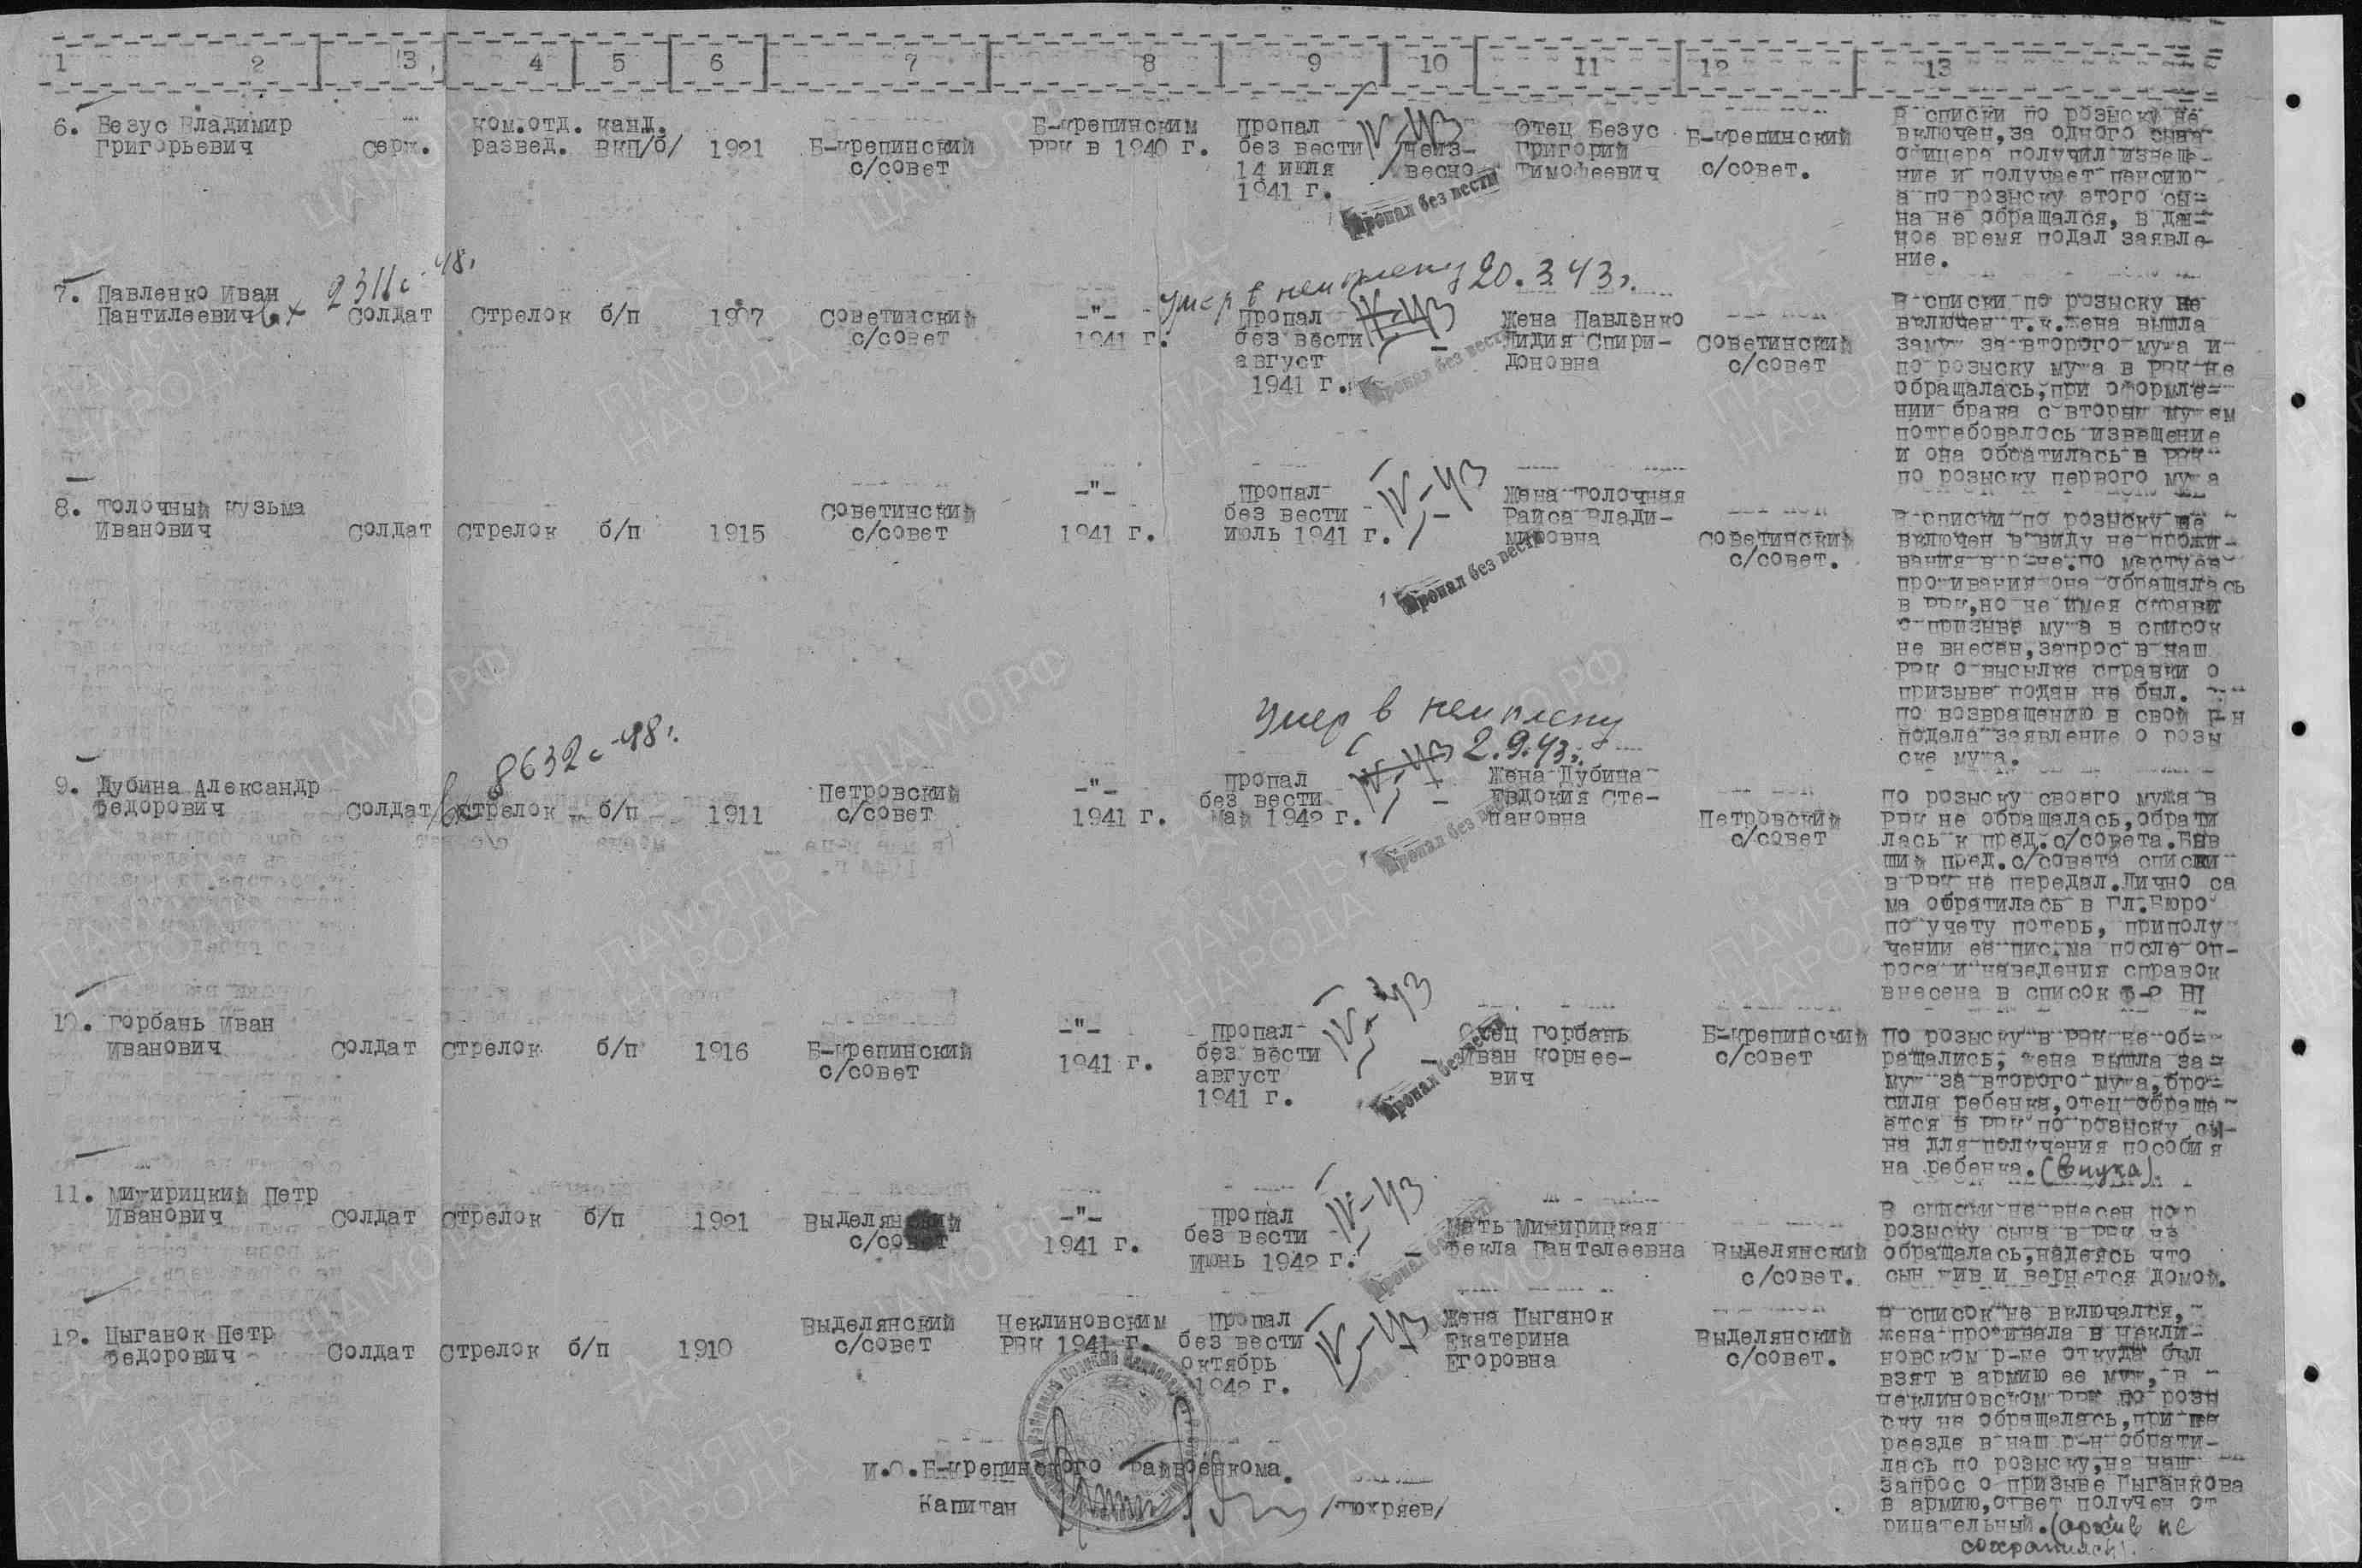 1 2 3 4 5 6 7 8 9 10 11 12 13
6. Безус Владимир
Григорьевич
серж.
ком.отд.
развед.
канд.
ВКП/б/
1921
Б-крепинский
с/совет
Б-крепинским
РВК в 1940 г.
Пропал
без вести
14 июля
1941 г.
IV-43
неиз-
весно
Пропал без вести
Отец Безус
Григорий
Тимофеевич
Б-крепинский
с/совет.
В списки по розыску не
включен, за одного сына
офицера получил извеще-
ние и получает пенсию
а по розыску этого сы-
на не обращался, в дан-
ное время подал заявле-
ние.
7. Павленко Иван
Пантилеевич
2311с-48г.
Солдат
Стрелок
б/п
1907
Советинский
с/совет
-"-
1941 г.
умер в нем плену 20.3.43г.
Пропал
без вести
август
1941 г.
IV-43
-
Пропал без вести
Жена Павленко
Лидия Спири-
доновна
Советинский
с/совет
В списки по розыску не
включен т.к.жена вышла
замуж за второго мужа и
по розыску мужа в РВК не
обращалась,при оформле-
нии брака с вторым мужем
потребовалось извещение
и она обратилась в РВК
по розыску первого мужа
8. Толочный Кузьма
Иванович
Солдат
Стрелок
б/п
1915
Советинский
с/совет
-"-
1941 г.
Пропал
без вести
июль 1941 г.
IV-43
-
Пропал без вести
Жена Толочная
Раиса Влади-
мировна
Советинский
с/совет.
В списки по розыску не
включен в виду не прожи-
вания в р-не.по месту ее
проживания она обращалась
в РВК,но не имея справки
о призыве мужа в список
не внесен,запрос в наш
РВК о высылке справки о
призыве подан не был.
по возвращению в свой р-н
подала заявление о розы
ске мужа.
9. Дубина Александр
Федорович
8632с-48г.
Солдат
стрелок
б/п
1911
Петровский
с/совет
-"-
1941 г.
Умер в нем плену
2.9.43г.
пропал
без вести
май 1942 г.
IV-43
-
Пропал без вести
Жена Дубина
Евдокия Сте-
пановна
Петровский
с/совет
По розыску своего мужа в
РВК не обращалась,обрати
лась к пред.с/совета.Быв
ший пред.с/совета списки
в РВК не передал.Лично са
ма обратилась в Гл.Бюро
по учету потерь, приполу
чении ее письма после оп-
роса и наведения справок
внесена в список
10. Горбань Иван
Иванович
Солдат
Стрелок
б/п
1916
Б-крепинский
с/совет
-"-
1941 г.
Пропал
без вести
август
1941 г.
IV-43
-
Пропал без вести
Отец Горбань
Иван Корнее-
вич
Б-крепинский
с/совет
По розыску в РВК не об-
ращались, жена вышла за-
муж за второго мужа,бро-
сила ребенка,отец обраща-
ется в РВК по розыску сы-
на для получения пособия
на ребенка.(внука).
11. Мижирицкий Петр
Иванович
Солдат
Стрелок
б/п
1921
Выделянский
с/совет
-"-
1941 г.
Пропал
без вести
Июнь 1942 г.
IV-43
-
Пропал без вести
Мать Мижирицкая
Фекла Пантелеевна
Выделянский
с/совет.
В списки не внесен по
розыску сына в РВК не
обращалась,надеясь что
сын жив и вернется домой.
12. Цыганок Петр
Федорович
Солдат
Стрелок
б/п
1910
Выделянский
с/совет
Неклиновским
РВК 1941 г.
Пропал
без вести
октябрь
1942 г.
IV-43
-
Пропал без вести
Жена Цыганок
Екатерина
Егоровна
Выделянский
с/совет.
В список не включался,
жена проживала в Некли-
новском р-не откуда был
взят в армию ее муж, в
Неклиновском РВК по розы
ску не обращалась,при пе
реезде в наш р-н обрати-
лась по розыску,на наш
запрос о призыве Цыганкова
в армию,ответ получен от
рицательный.(архив не
сохранился).
И.О.Б-крепинского Райвоенкома.
Капитан /Тюхряев/
ЦАМО.РФ
ПАМЯТЬ
НАРОДА